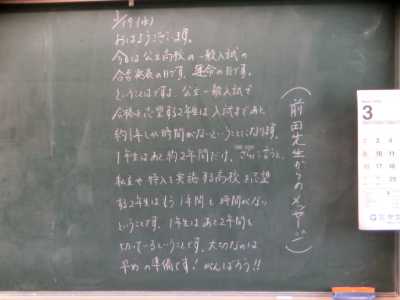 3/19(水)
おはようございます。
今日は公立高校の一般入試の
合否発表の日です。運命の日です。
ということは、公立一般入試で
合格を志望する2年生は入試まであと
約1年しか時間がないということになります。
1年生はあと約2年間だけ。さらに言うと、
私立や特入を実施する高校を志望
する2年生はもう1年間も時間がない
ということです。1年生はあと2年間を
切っているということです。大切なのは
早めの準備です!がんばろう!!
(前田先生からのメッセージ)
3